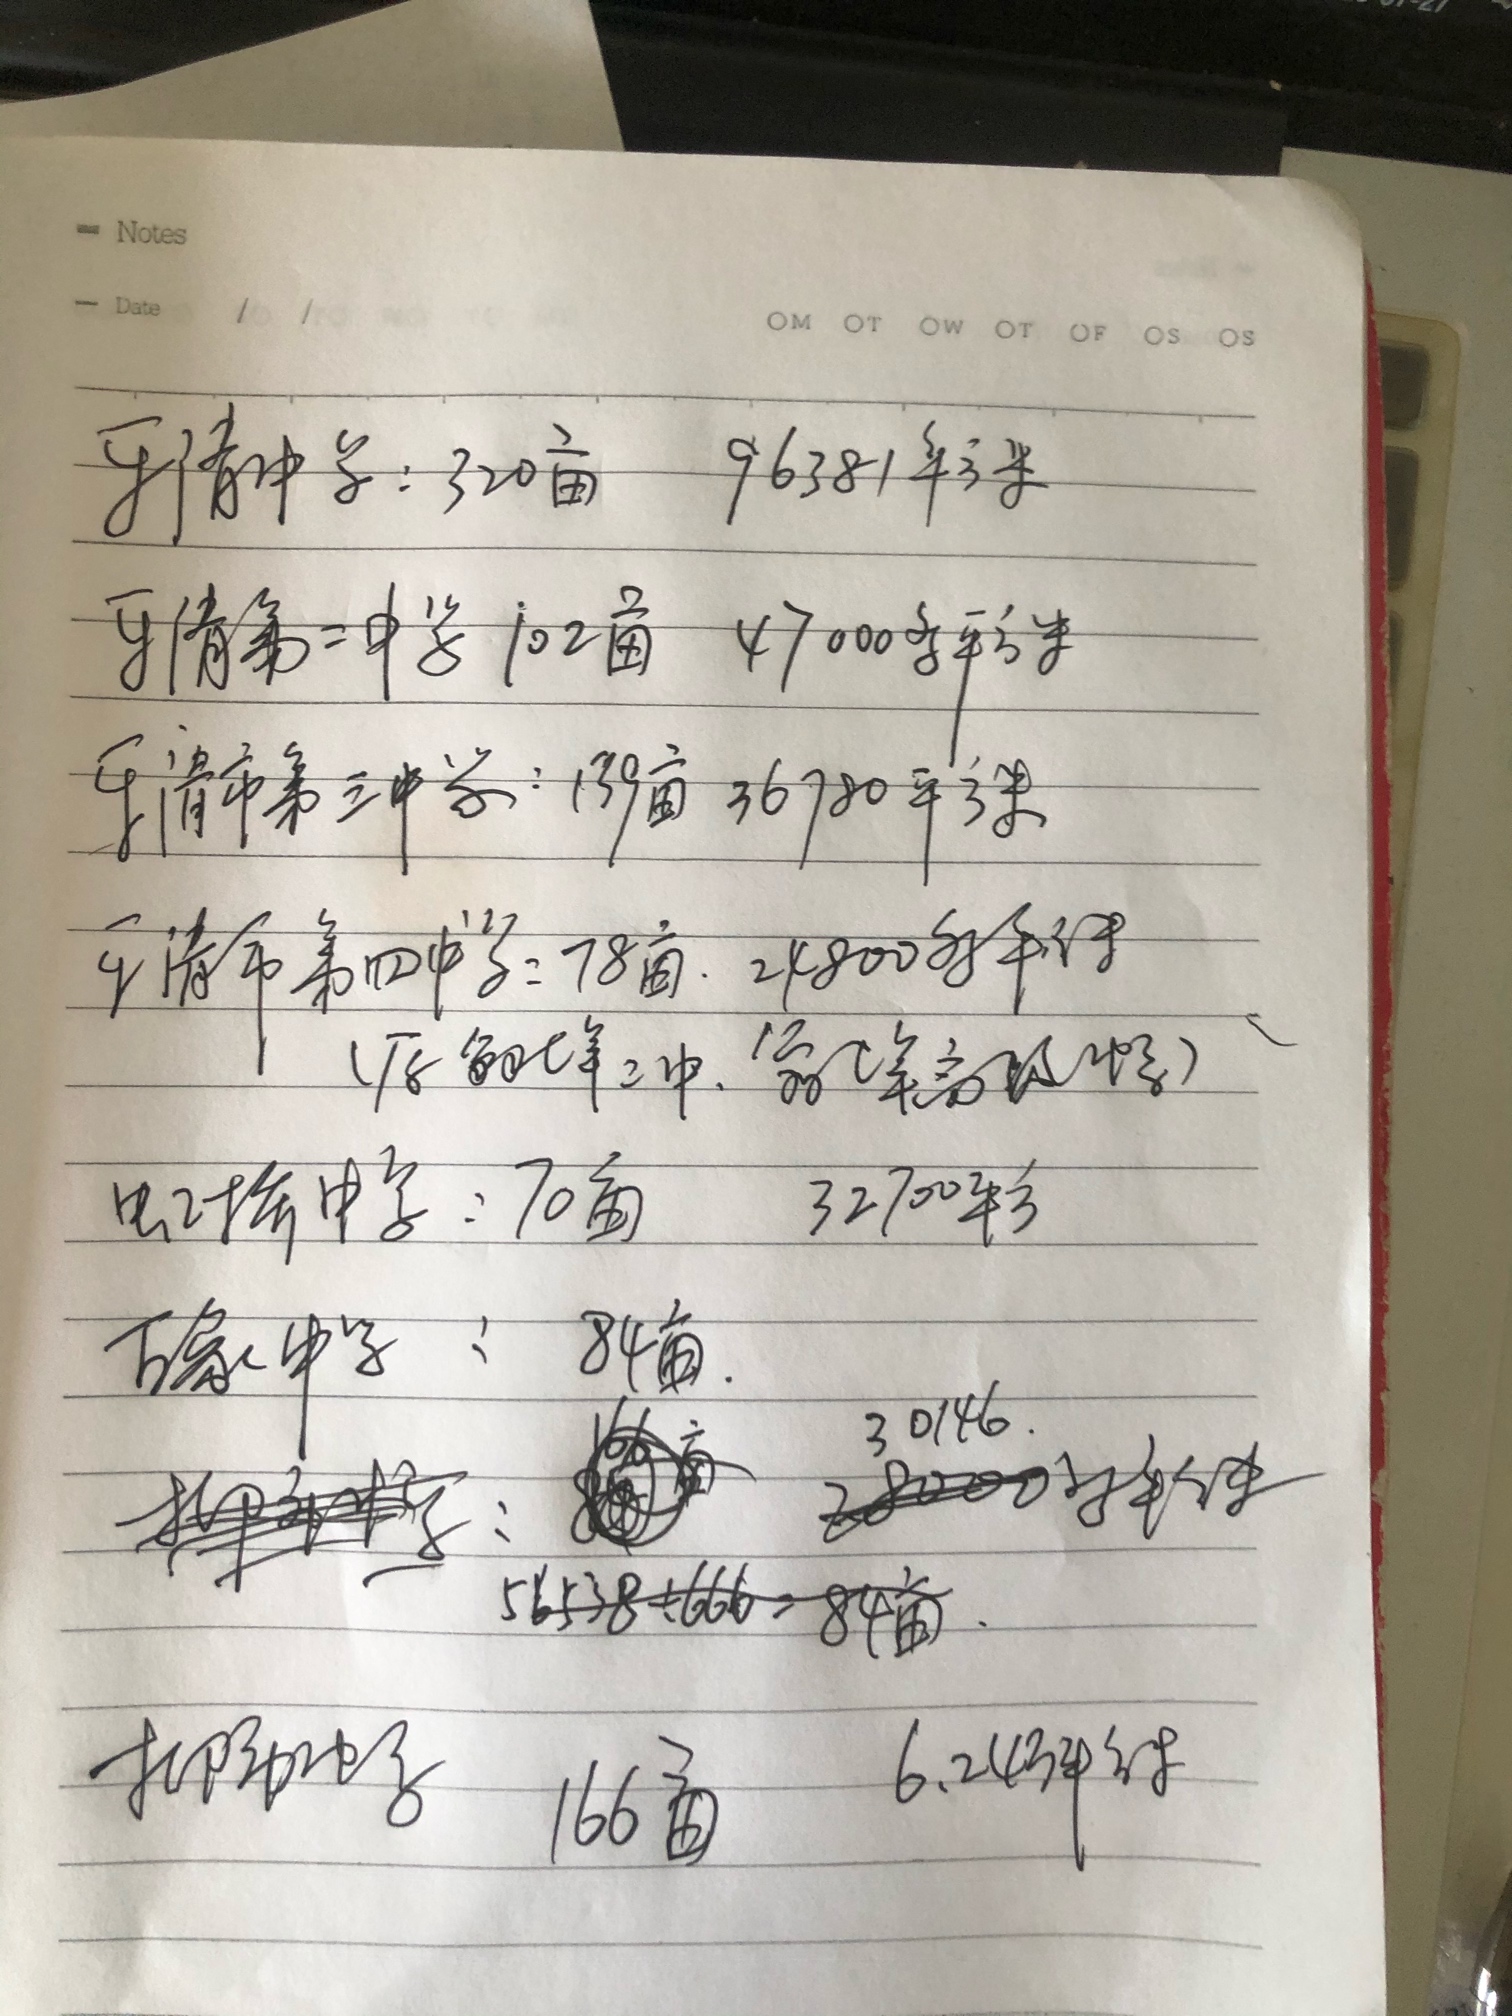 Notes
Date / /
OM OT OW OT OF OS OS
乐清中学：320亩 96381平方米
乐清第二中学 102亩 47000多平方米
乐清市第三中学：139亩 36780平方米
乐清市第四中学：78亩. 24800多平方米
二中.
中学：70亩 32700平方
中学：84亩.
166亩 30146.
中学： 28000多平方米
56538÷666=84亩.
中学 166亩 6.24万平方米